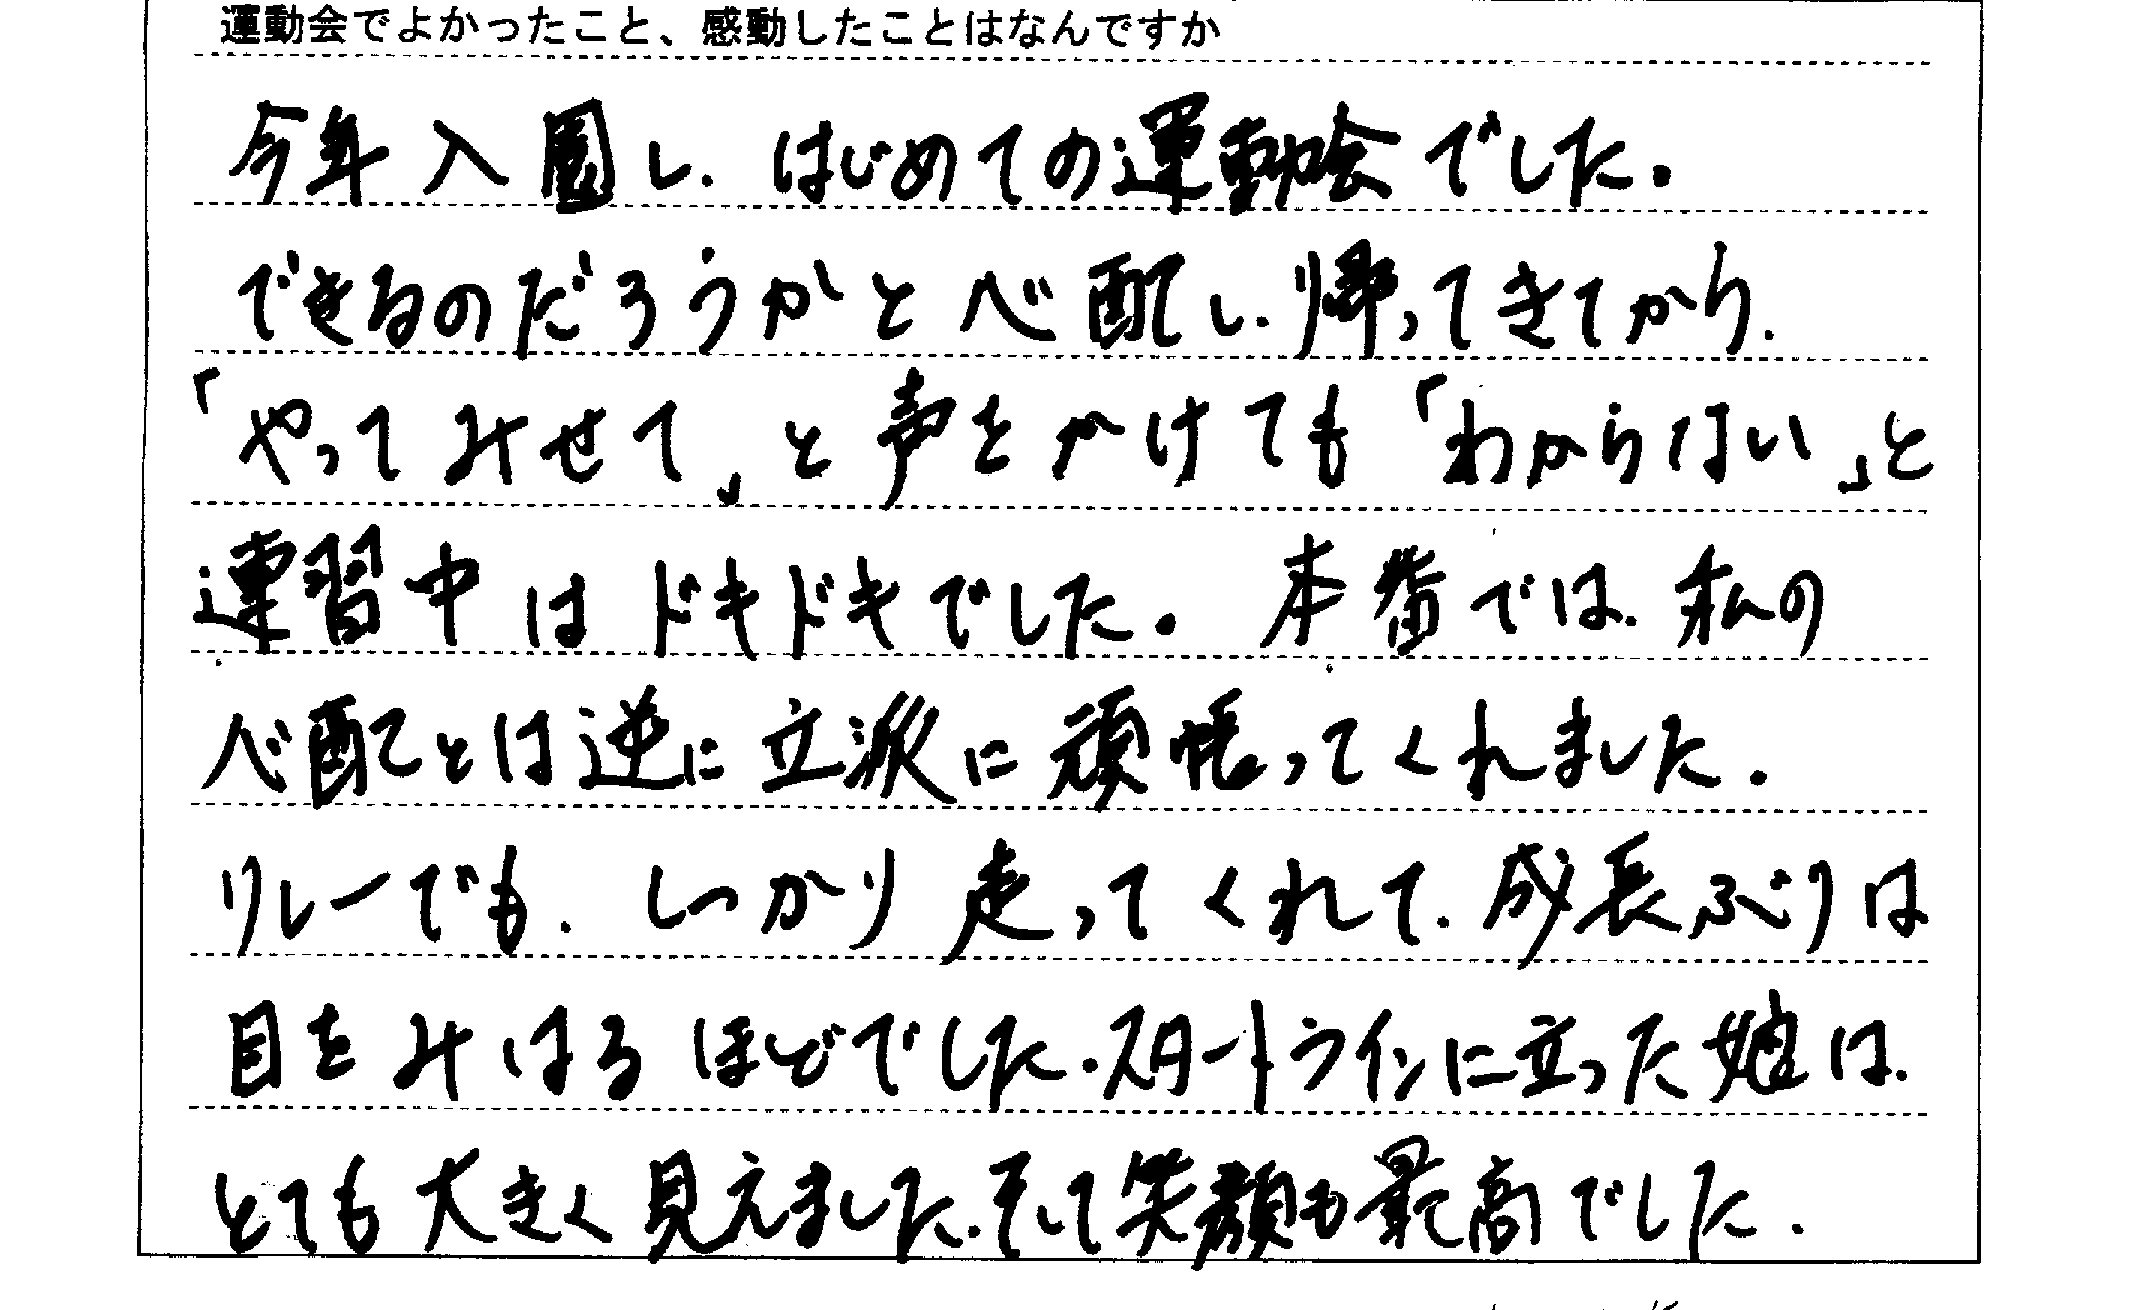 運動会でよかったこと、感動したことはなんですか
今年入園し、はじめての運動会でした。
できるのだろうかと心配し、帰ってきてから、
「やってみせて」と声をかけても「わからない」と
練習中はドキドキでした。本番では、私の
心配とは逆に立派に頑張ってくれました。
リレーでも、しっかり走ってくれて、成長ぶりは
目をみはるほどでした。スタートラインに立った娘は、
とても大きく見えました。そして笑顔も最高でした。